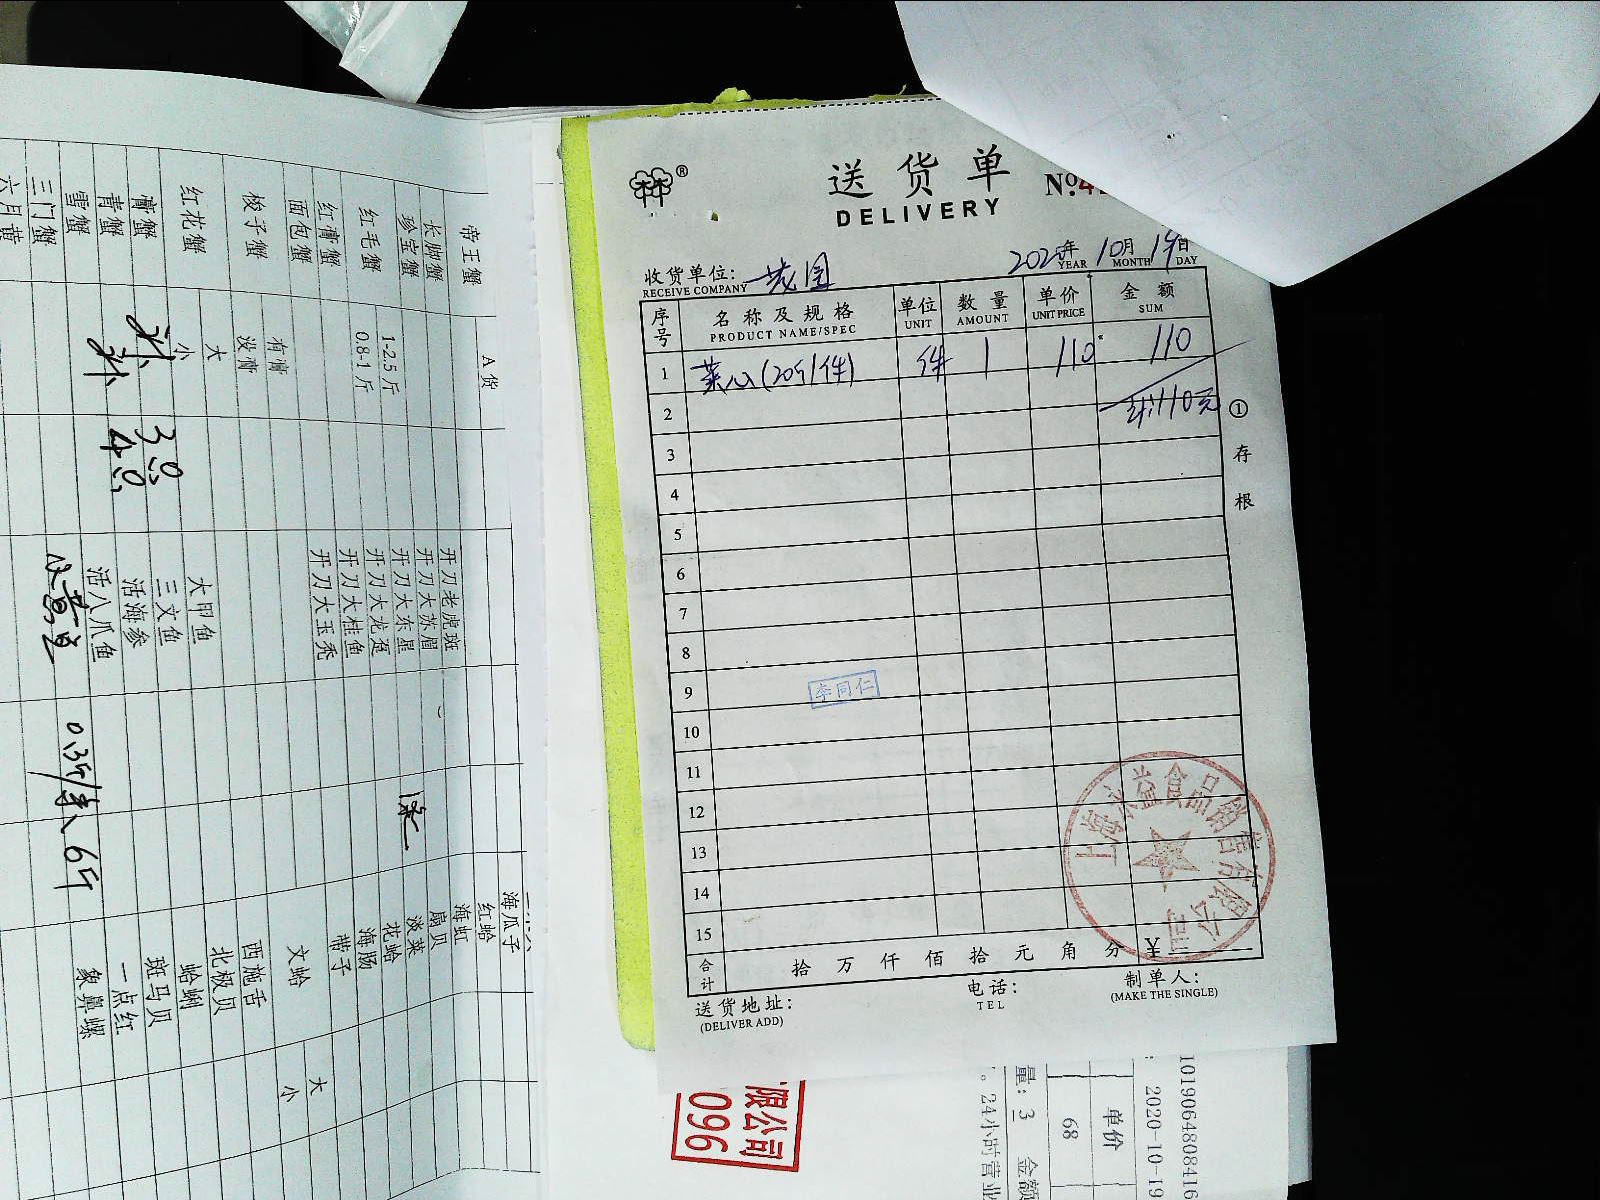 送货单
DELIVERY
No.4
收货单位: 茂园
RECEIVE COMPANY
2020年10月19日
YEAR MONTH DAY
序号 名称及规格 单位 数量 单价 金额
PRODUCT NAME/SPEC UNIT AMOUNT UNIT PRICE SUM
1 菜心(20斤/件) 件 1 110 110
2 计110元
3
4
5
6
7
8
9
李同仁
10
11
12
13
14
15
合计 拾 万 仟 佰 拾 元 角 分 ¥
送货地址:
(DELIVER ADD)
电话:
TEL
制单人:
(MAKE THE SINGLE)
① 存根
上海永益食品销售有限公司
帝王蟹 A货
长脚蟹
珍宝蟹 1-2.5斤
红毛蟹 0.8-1斤
红膏蟹
面包蟹
梭子蟹 有膏
没膏
红花蟹 大
小
膏蟹 3只
青蟹 4只
雪蟹
三门蟹
六月黄
开刀老虎斑
开刀大苏眉
开刀大东星
开刀大龙趸
开刀大桂鱼
开刀大玉秃
大甲鱼
三文鱼
活海参
活八爪鱼
0.3斤/条、6斤
海瓜子
红蛤
海虹
扇贝
淡菜
花蛤
海肠
带子
文蛤 大
小
西施舌
北极贝
蛤蜊
斑马贝
一点红
象鼻螺
限公司
096
1019064808416
: 2020-10-19
单价
68
量: 3 金额
。24小时营业